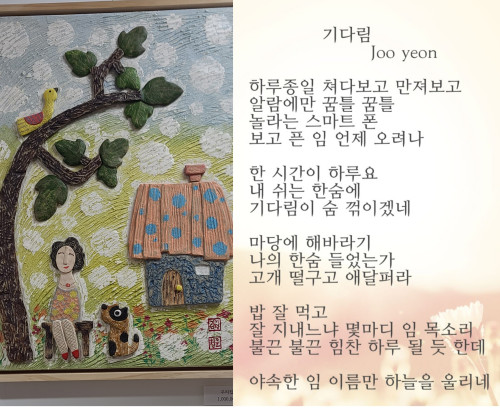 기다림
Joo yeon
하루종일 쳐다보고 만져보고
알람에만 꿈틀 꿈틀
놀라는 스마트 폰
보고 픈 임 언제 오려나
한 시간이 하루요
내 쉬는 한숨에
기다림이 숨 꺾이겠네
마당에 해바라기
나의 한숨 들었는가
고개 떨구고 애달퍼라
밥 잘 먹고
잘 지내느냐 몇마디 임 목소리
불끈 불끈 힘찬 하루 될 듯 한데
야속한 임 이름만 하늘을 울리네